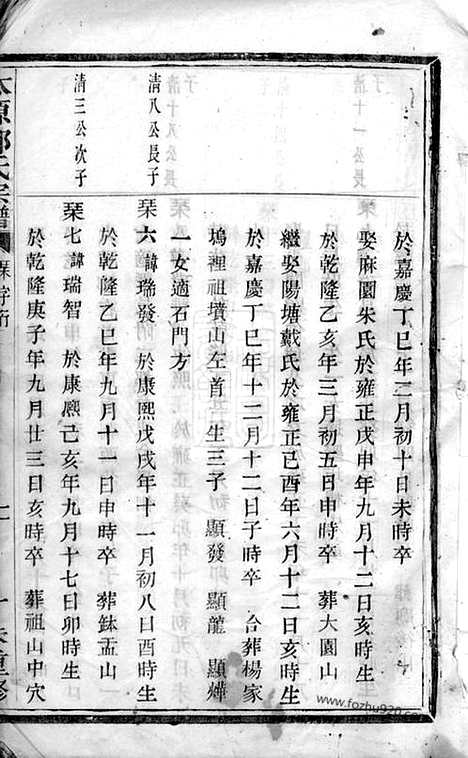 於嘉慶丁巳年二月初十日未時卒
娶麻園朱氏於雍正戊申年九月十二日亥時生
於乾隆乙亥年三月初五日申時卒 葬大園山
繼娶陽埴戴氏於雍正己酉年六月十二日亥時生
於嘉慶丁巳年十二月十二日子時卒 合葬楊家
塢裡祖墳山左首 生三子 顯發 顯龍 顯燁
一女適石門方
清八公長子 琹六 諱瑞發 於康熙戊戌年十一月初八日酉時生
於乾隆乙巳年九月十一日申時卒 葬鉢盂山
清三公次子 琹七 諱瑞智 於康熙己亥年九月十七日卯時生
於乾隆庚子年九月廿三日亥時卒 葬祖山中穴
氏宗譜
www.fozhu920.com